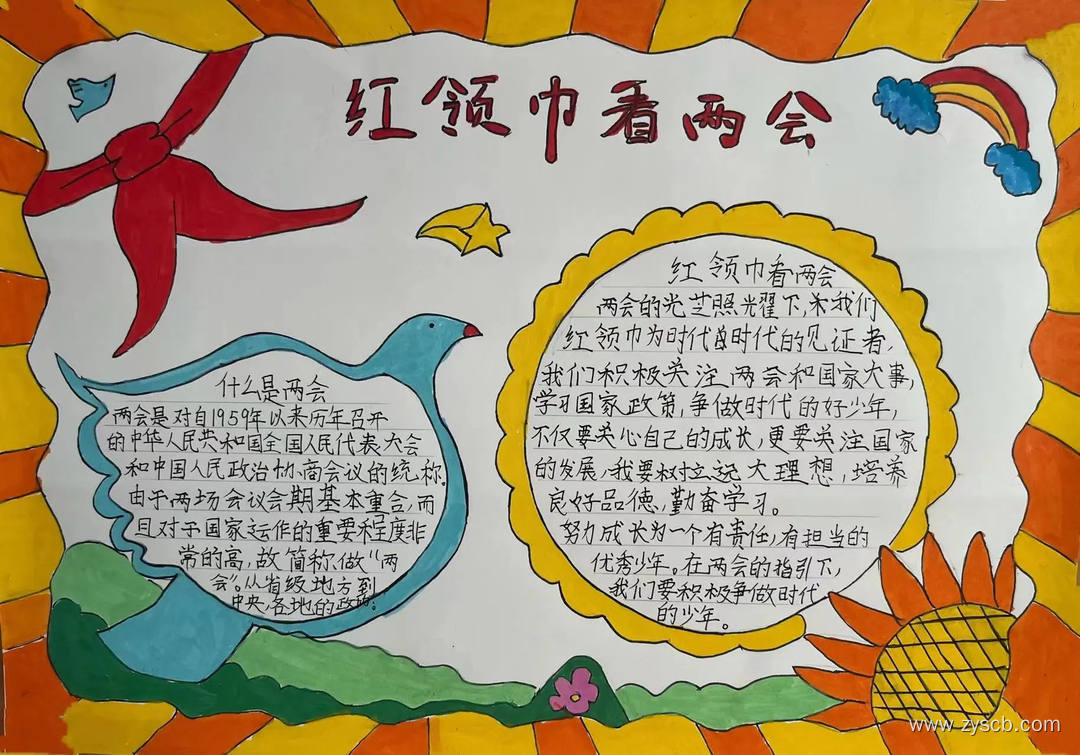 红领巾看两会
什么是两会
两会是对自1959年以来历年召开
的中华人民共和国全国人民代表大会
和中国人民政治协商会议的统称.
由于两场会议会期基本重合,而
且对于国家运作的重要程度非
常的高,故简称做“两
会”。从省级地方到
中央,各地的政
红领巾看两会
两会的光芝照光耀下,我们
红领巾为时代时代的见证者,
我们积极关注两会和国家大事,
学习国家政策,争做时代的好少年,
不仅要关心自己的成长,更要关注国家
的发展,我要树立远大理想,培养
良好品德,勤奋学习。
努力成长为一个有责任,有担当的
优秀少年。在两会的指引下,
我们要积极争做时代
的少年。
www.zyscb.com